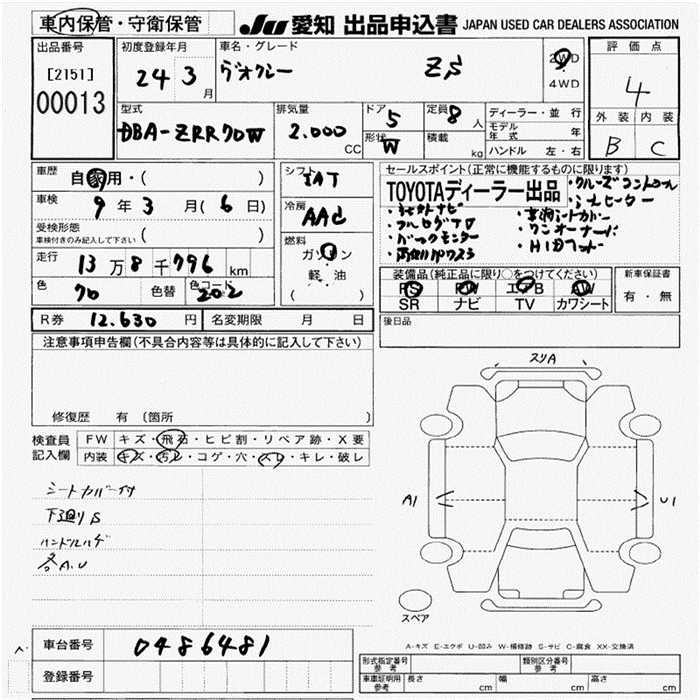 車内保管・守衛保管 JU 愛知 出品申込書 JAPAN USED CAR DEALERS ASSOCIATION
出品番号 初度登録年月 車名・グレード 2WD 評価点
[2151] 24 3 月 ヴォクシー ZS 4WD 4
00013
型式 排気量 ドア 5 定員 8 人 ディーラー・並行 外装 内装
DBA-ZRR70W 2.000 CC 形状 W 積載 kg モデル年式 年 B C
ハンドル 左・右
車歴 自家用・( ) シフト IAT セールスポイント(正常に機能するものに限ります)
車検 9年 3月( 6日) 冷房 AAC TOYOTAディーラー出品 ・クルーズコントロール
受検形態 ( ) ・シートヒーター
車検付きのみ記入して下さい 燃料 ・フルセグTV ・ワンオーナー
走行 13万 8千 796 km ガソリン ・バックモニター
色 70 色替 色コード 202 軽油 ( ) 装備品(純正品に限り○をつけてください) 新車保証書
PS PW エアB AW 有・無
SR ナビ TV カワシート
R券 12.630 円 名変期限 月 日 後日品
注意事項申告欄(不具合内容等は具体的に記入して下さい)
スリA
修復歴 有(箇所
検査員 FW キズ・飛石・ヒビ割・リペア跡・X要
記入欄 内装 キズ・汚レ・コゲ・穴・スレ・キレ・破レ
シートカバー付
下廻りS A1 U1
ハンドルハゲ
各A.U
スペア
A-キズ E-エクボ U-凹み W-補修跡 S-サビ C-腐食 XX-交換済
車台番号 0486481
登録番号
形式指定番号 参考 類別区分番号 参考
車庫証明用 参考 長さ cm 幅 cm 高さ cm